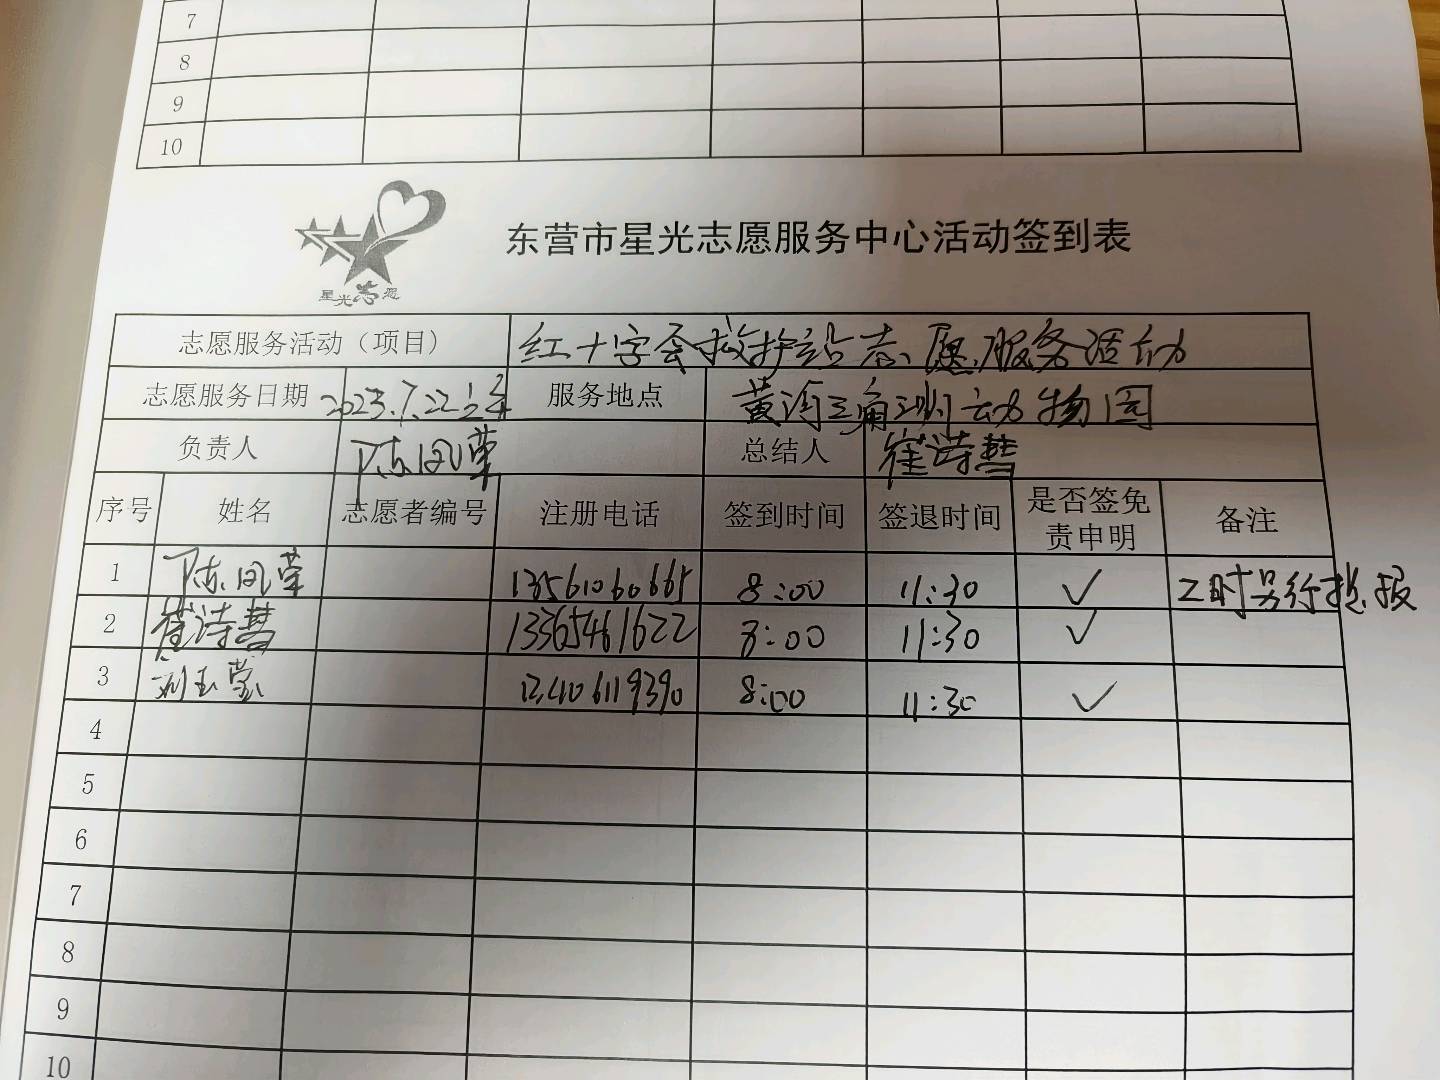 7
8
9
10
星光志愿
东营市星光志愿服务中心活动签到表
志愿服务活动（项目） 红十字会救护站志愿服务活动
志愿服务日期 2023.7.22 服务地点 黄河三角洲动物园
负责人 陈凤荣 总结人 崔诗慧
序号 姓名 志愿者编号 注册电话 签到时间 签退时间 是否签免责申明 备注
1 陈凤荣 13561060665 8:00 11:30 ✓ 工时另行提报
2 崔诗慧 13365461622 8:00 11:30 ✓
3 8:00 11:30 ✓
4
5
6
7
8
9
10